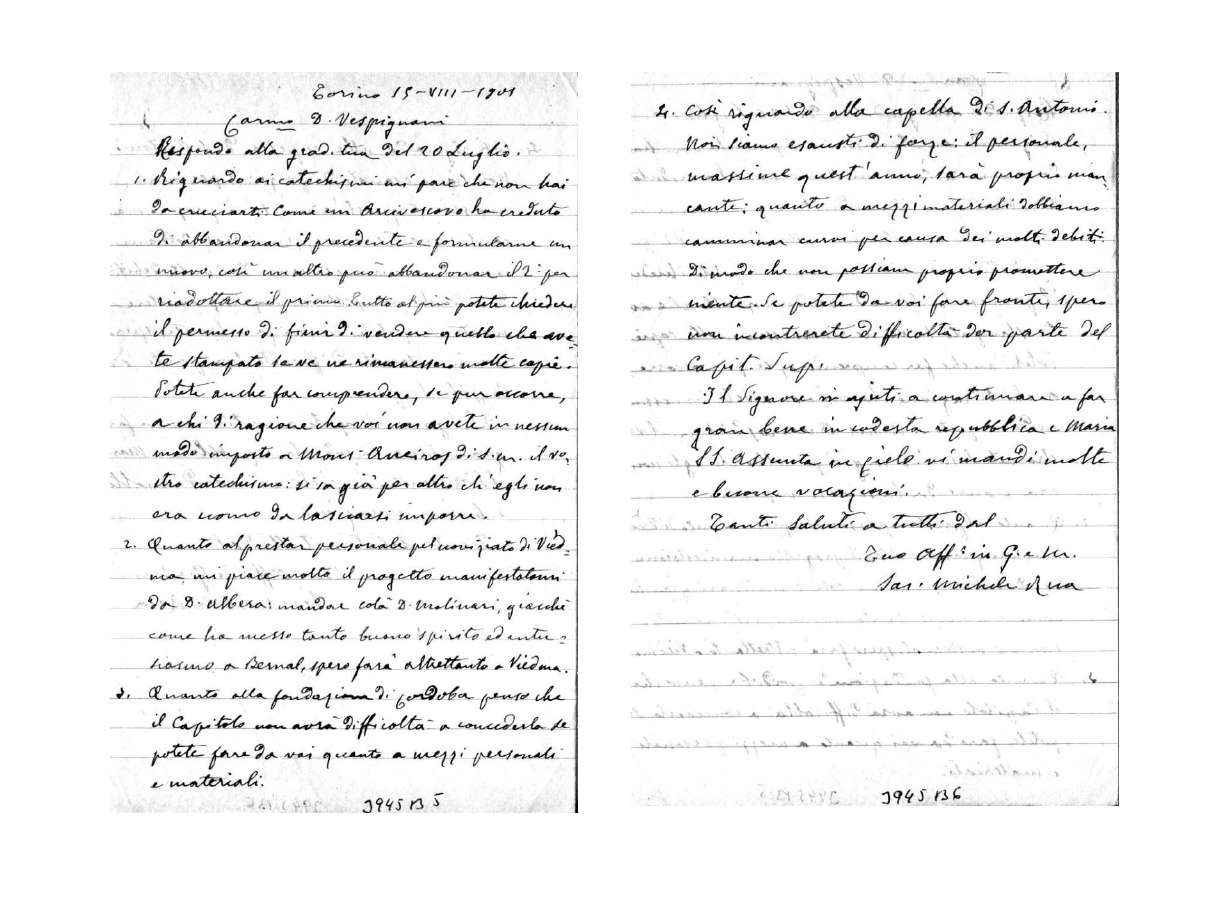 Torino 15-VIII-1901
Carmo D. Vespignani
Rispondo alla grad. tua del 20 Luglio.
1. Riguardo ai catechismi mi pare che non hai
da cruciarti. Come un Arcivescovo ha creduto
di abbandonar il precedente e formularne un
nuovo, così un altro può abbandonar il 2° per
riadottare il primo. Tutto al più potete chiedere
il permesso di finir di vendere quello che ave=
te stampato se ve ne rimanessero molte copie.
Potete anche far comprendere, se pur occorre,
a chi di ragione che voi non avete in nessun
modo imposto a Mons. Aneiros di s.m. il vo=
stro catechismo: si sa già per altro ch'egli non
era uomo da lasciarsi imporre.
2. Quanto al prestar personale pel noviziato di Vied=
ma, mi piace molto il progetto manifestatomi
da D. Albera: mandar colà D. Molinari, giacchè
come ha messo tanto buono spirito ed entu=
siasmo a Bernal, spero farà altrettanto a Viedma.
3. Quanto alla fondazione di Cordoba penso che
il Capitolo non avrà difficoltà a concederla se
potete fare da voi quanto a mezzi personali
e materiali.
3945 B 5
4. Così riguardo alla capella di S. Antonio.
Noi siamo esausti di forze: il personale,
massime quest'anno, sarà proprio man=
cante; quanto a mezzi materiali dobbiamo
camminar curvi per causa dei molti debiti.
Di modo che non possiam proprio promettere
niente. Se potete da voi fare fronte, spero
non incontrerete difficoltà dar parte del
Capit. Sup.
Il Signore vi ajuti a continuare a far
gran bene in codesta repubblica e Maria
SS. Assunta in cielo vi mandi molte
e buone vocazioni.
Tanti saluti a tutti dal
Tuo Aff° in G. e M.
Sac. Michele Rua
3945 B6